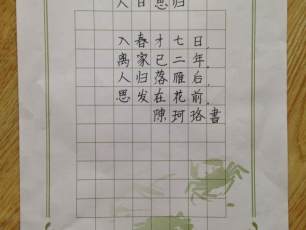 人日思归
入春才七日，
离家已二年，
人归落雁后，
思发在花前。
陈珂珞書